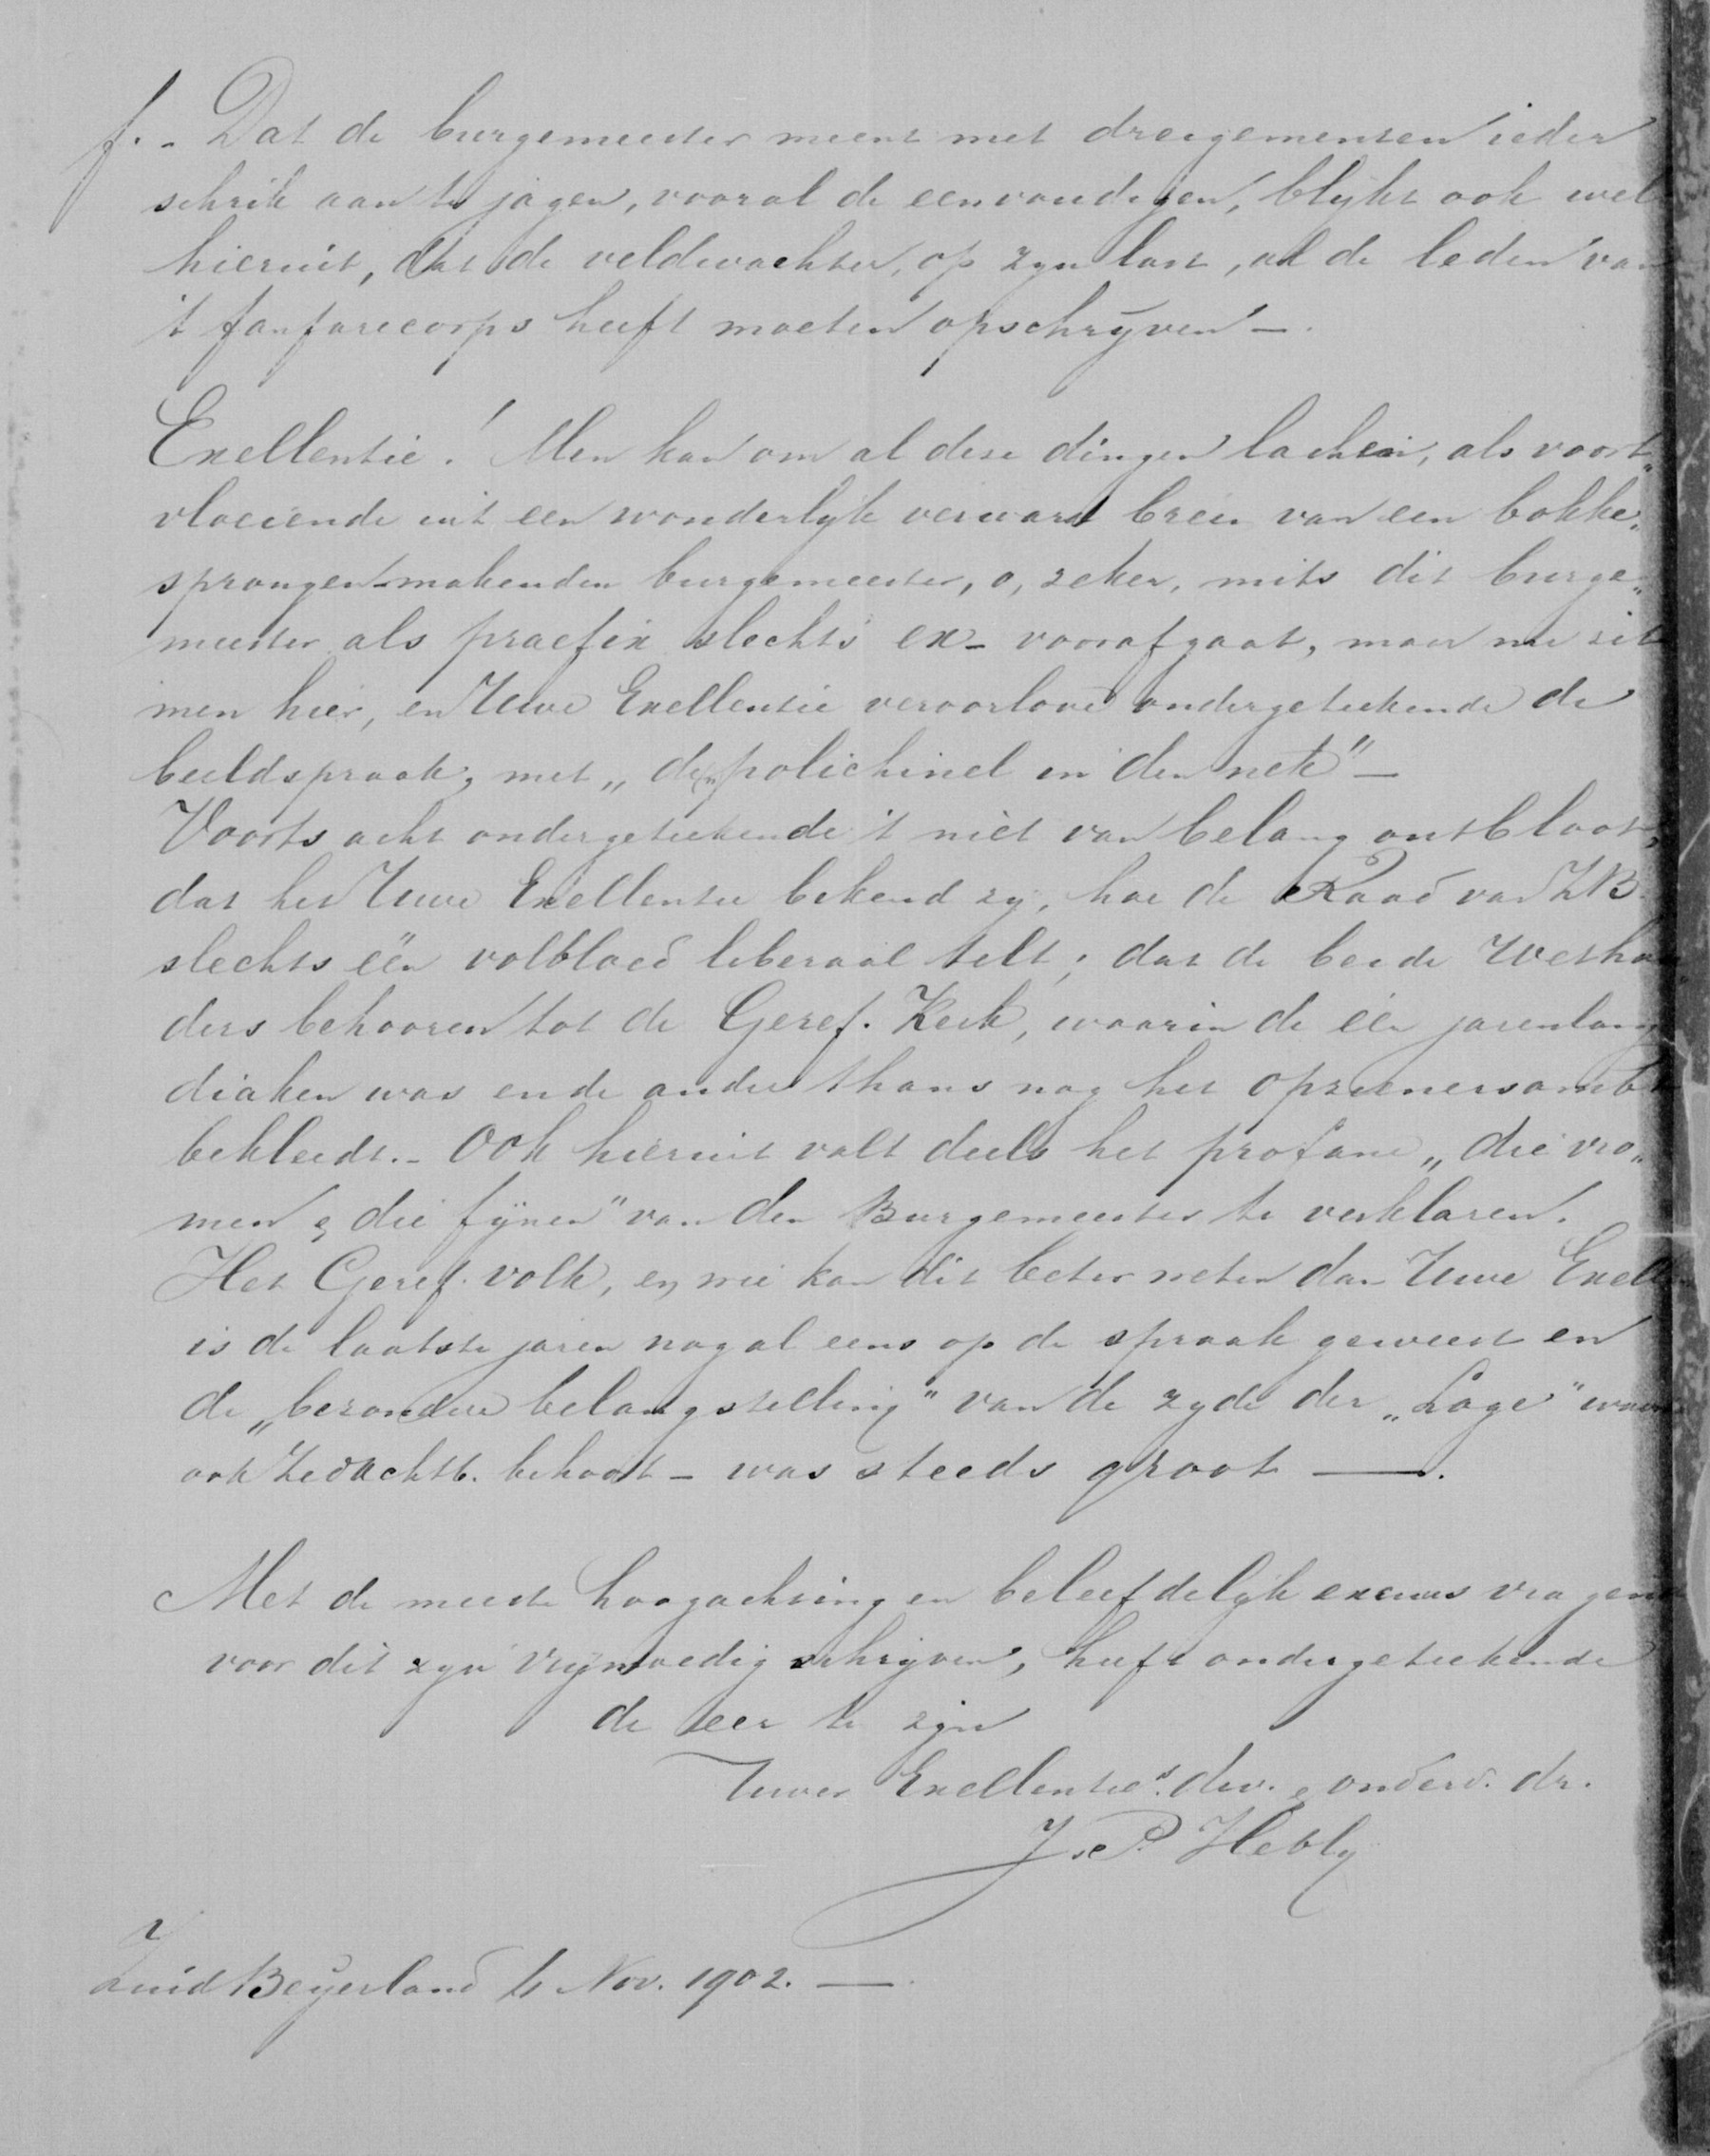 f. - Dat de burgemeester meent met dreigementen ieder
schrik aan te jagen, vooral de eenvoudigen, blijkt ook wel
hieruit, dat de veldwachter, op zijn last, al de leden van
't fanfarecorps heeft moeten opschrijven —.
Exellentie! Men kan om al deze dingen lachen, als voort„
vloeiende uit een wonderlijk verward brein van een bokke„
sprongen-makenden burgemeester, o, zeker, mits dit burge„
meester als praefix slechts ex- voorafgaat, maar nu zit
men hier, en Uwe Exellentie veroorlove ondergeteekende de
beeldspraak, met „ de(n) polichinel in den nek" —
Voorts acht ondergeteekende 't niet van belang ontbloot,
dat het Uwe Exellentie bekend zij, hoe de Raad van ZB.
slechts één volbloed liberaal telt; dat de beide Wethou„
ders behooren tot de Geref. Kerk, waarin de één jarenlang
diaken was en de ander thans nog het opzienersambt
bekleedt. - Ook hieruit valt deels het profane „ die vro„
men & die fijnen" van den Burgemeester te verklaren.
Het Geref. volk, en wie kan dit beter weten dan Uwe Exell
is de laatste jaren nog al eens op de spraak geweest en
de „bezondere belangstelling" van de zijde der „Loge" waar
ook ZedAchtb. behoort - was steeds groot —.
Met de meeste hoogachting en beleefdelijk excuus vragend
voor dit zijn vrijmoedig schrijven, heeft ondergeteekende
de eer te zijn
Uwer Exellentie's. dw. & onderd. dr.
J. P. Hebly
Zuid Beijerland Nov. 1902. —.